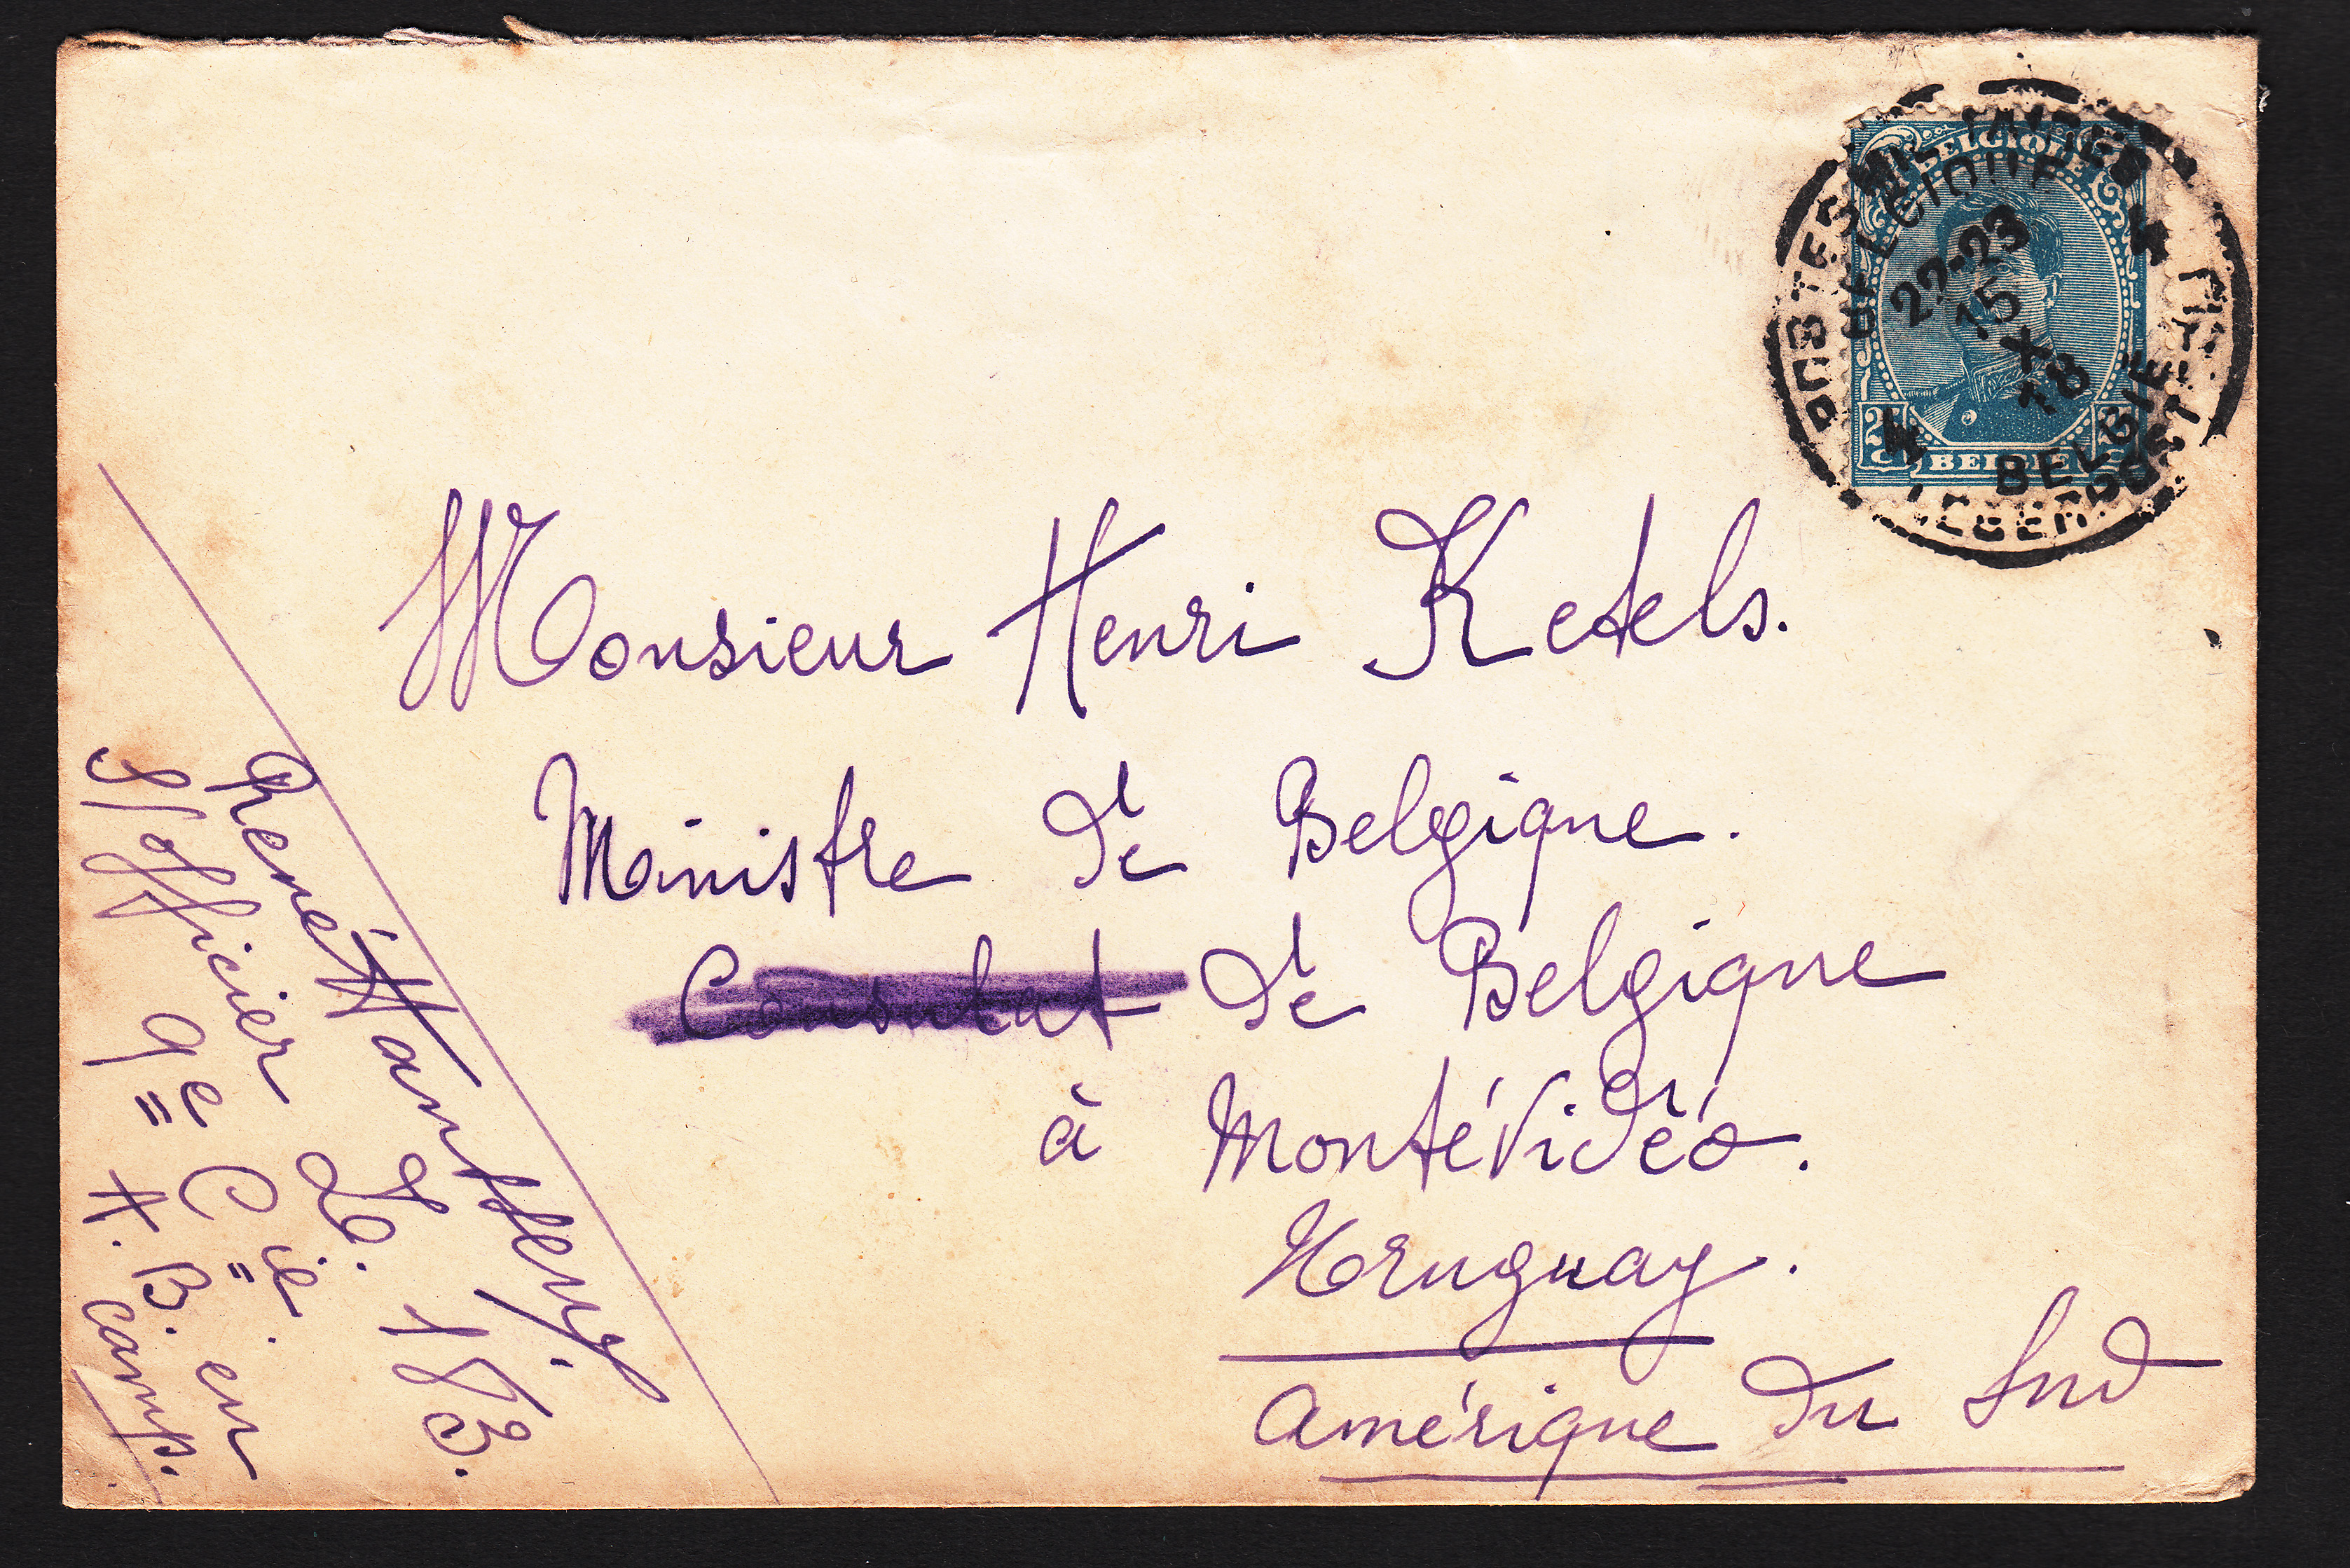 BELGIQUE
POSTES MILITAIRES
BELGIQUE
4
22-23
15
X
18
4
BELGIË
LEGERPOSTERIJ
25
C
BELGIË
Monsieur Henri Ketels.
Ministre de Belgique.
Consulat de Belgique
à Montévidéo.
Uruguay.
Amérique du Sud
René
D. 183.
S/officier 9e Cie.
A. B. en camp.